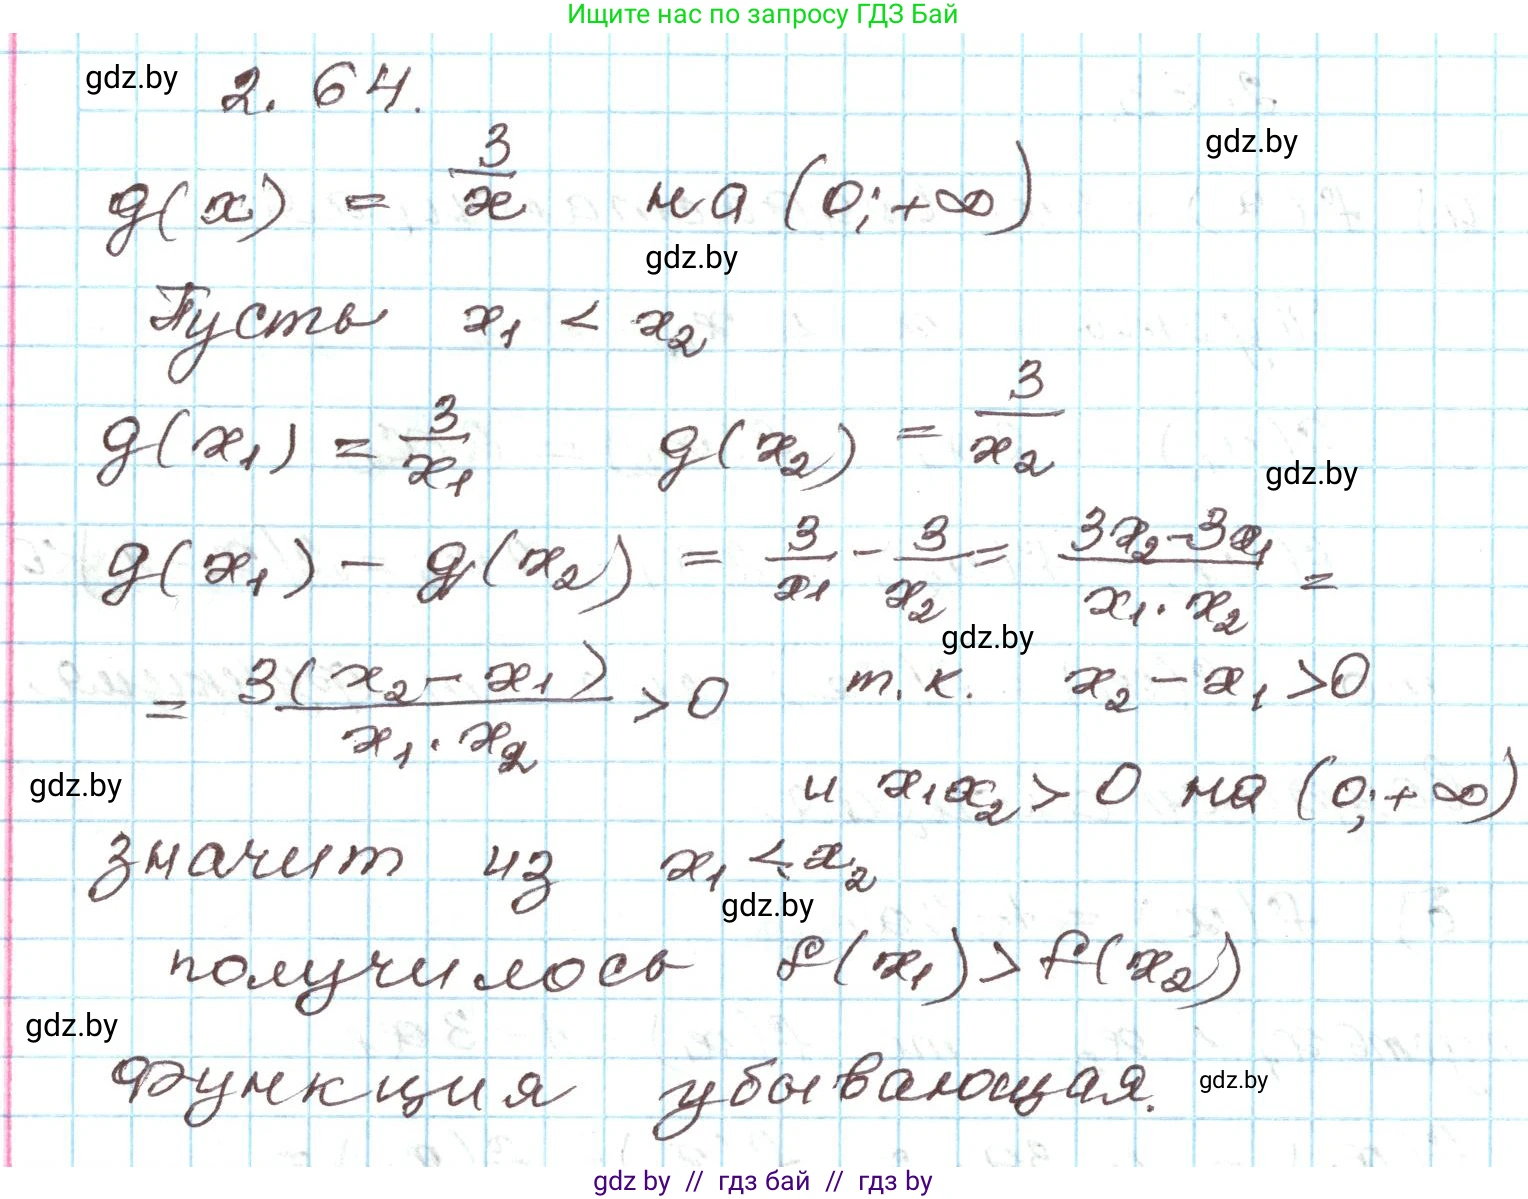 Ищите нас по запросу ГДЗ Бай
gdz.by 2.64.
gdz.by
g(x) = 3/x на (0; +∞)
gdz.by
Пусть x₁ < x₂
g(x₁) = 3/x₁ g(x₂) = 3/x₂
gdz.by
g(x₁) - g(x₂) = 3/x₁ - 3/x₂ = (3x₂-3x₁)/(x₁·x₂) =
gdz.by
= 3(x₂-x₁)/(x₁·x₂) > 0 т.к. x₂-x₁>0
gdz.by и x₁x₂ > 0 на (0; +∞)
значит из x₁ < x₂
gdz.by
получилось f(x₁) > f(x₂)
gdz.by
Функция убывающая.
gdz.by
gdz by // гдз бай // гдз by